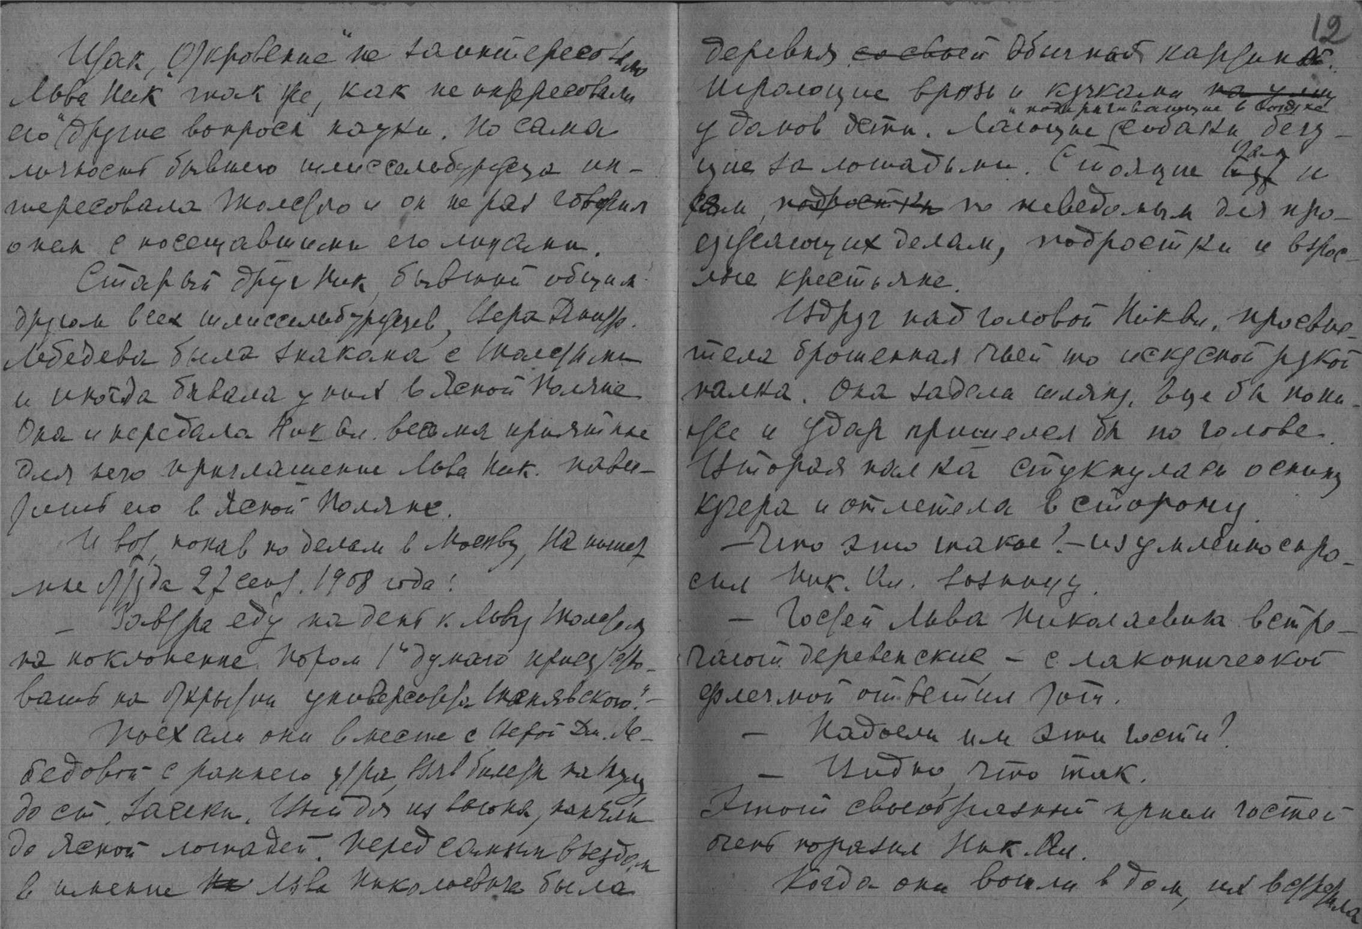 Итак, „Откровение" не заинтересовало
Льва Ник. так же, как не интересовали
его другие вопросы науки. Но сама
личность бывшего шлиссельбуржца ин-
тересовала Толстого и он не раз говорил
о нем с посещавшими его лицами.
Старый друг Ник, бывший общим
другом всех шлиссельбуржцев, Вера Дмитр.
Лебедева была знакома с Толстыми
и иногда бывала у них в Ясной Поляне
Она и передала Ник Ал. весьма приятное
для него приглашение Льва Ник. наве-
стить его в Ясной Поляне.
И вот, попав по делам в Москву, Ник пишет
мне оттуда 27 сент. 1908 года:
— Завтра еду на день к Льву Толстому
на поклонение. Потом думаю
вать на открытии университета Шанявского."—
Поехали они вместе с Верой Дм. Ле-
бедевой с раннего утра, взяв билеты на
до ст. Засеки. Выйдя из вагона, наняли
до Ясной лошадей. Перед самым въездом
в имение Льва Николаевича была
12
деревня со своей обычной картиной.
Играющие врозь и кучками на улице
и подпрыгивающие в воздухе
у домов дети. Лающие собаки, бегу-
щие за лошадьми. Стоящие там и
сям, подростки по неведомым для про-
езжающих делам, подростки и взрос-
лые крестьяне.
Вдруг над головой Ник Ал. просвис-
тела брошенная чьей то искусной рукой
палка. Она задела шляпу. Еще бы пони-
же и удар пришелся бы по голове.
Вторая палка стукнулась о спину
кучера и отлетела в сторону.
— Что это такое?— изумленно спро-
сил Ник. Ал. возницу.
— Гостей Льва Николаевича встре-
чают деревенские — с лаконической
флегмой ответил тот.
— Надоели им эти гости?
— Видно, что так.
Этот своеобразный прием гостей
очень поразил Ник. Ал.
Когда они вошли в дом, их встретила